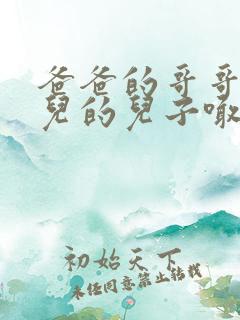 爸爸的哥哥
兒的兒子嗽
初始天下
未经同意禁止转载